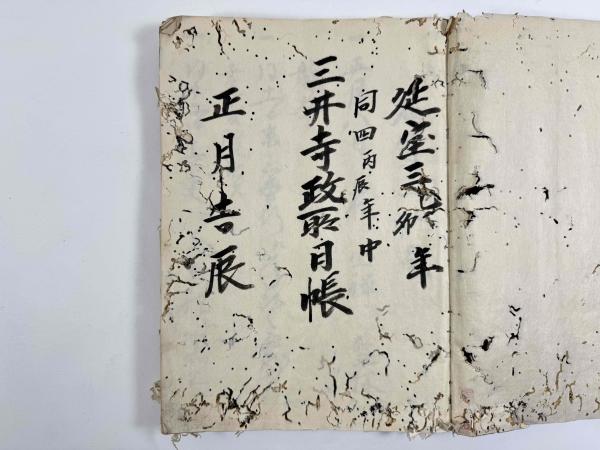 延宝三乙卯年
同四丙辰年中
三井寺政所日帳
正月吉辰